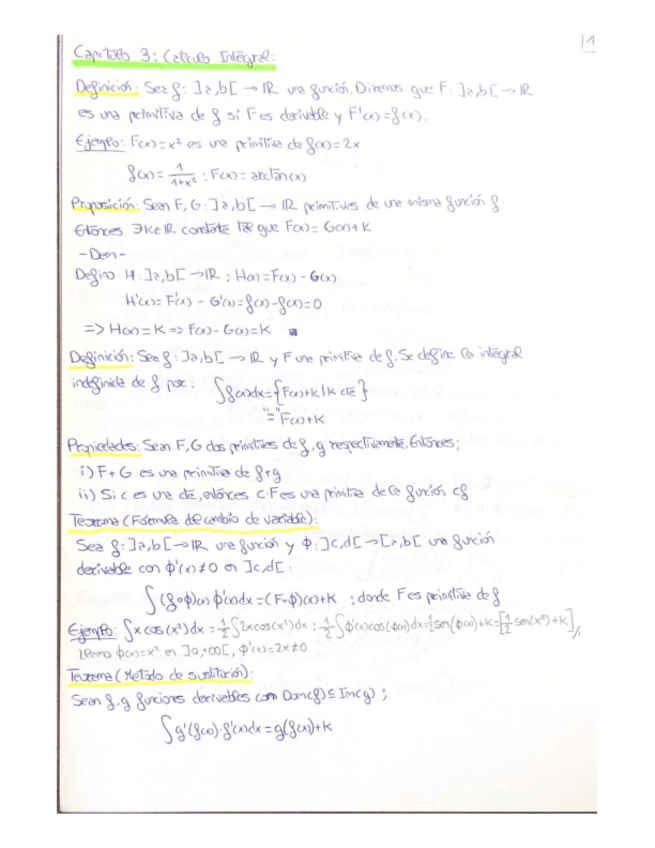 1
Capítulo 3: Cálculo Integral:
Definición: Sea f: ]a,b[ → IR una función. Diremos que F: ]a,b[ → IR
es una primitiva de f si F es derivable y F'(x)=f(x).
Ejemplo: F(x)=x² es una primitiva de f(x)=2x
f(x)= 1/(1+x²) ; F(x)=arctan(x)
Proposición: Sean F, G: ]a,b[ → IR primitivas de una misma función f.
Entonces ∃K∈IR constante tal que F(x)= G(x)+K
-Dem-
Defino H: ]a,b[ → IR ; H(x)=F(x) - G(x)
H'(x)= F'(x) - G'(x)=f(x)-f(x)=0
=> H(x)=K => F(x)-G(x)=K ■
Definición: Sea f: ]a,b[ → IR y F una primitiva de f. Se define la integral
indefinida de f por: ∫f(x)dx={F(x)+K / K cte}
"=" F(x)+K
Propiedades: Sean F, G dos primitivas de f, g respectivamente. Entonces;
i) F+G es una primitiva de f+g
ii) Si c es una cte, entonces c·F es una primitiva de la función cf
Teorema (Fórmula del cambio de variable):
Sea f: ]a,b[ → IR una función y ϕ: ]c,d[ → ]a,b[ una función
derivable con ϕ'(x)≠0 en ]c,d[:
∫(f∘ϕ)(x) ϕ'(x)dx=(F∘ϕ)(x)+K ; donde F es primitiva de f
Ejemplo: ∫x cos(x²)dx = 1/2 ∫2x cos(x²)dx ; 1/2 ∫ϕ'(x)cos(ϕ(x))dx=1/2 sen(ϕ(x))+K=[1/2 sen(x²)+K]
Llamo ϕ(x)=x² en ]0,+∞[, ϕ'(x)=2x≠0
Teorema (Método de sustitución):
Sean f, g funciones derivables con Dom(f)⊆Im(g);
∫g'(f(x))·f'(x)dx=g(f(x))+K